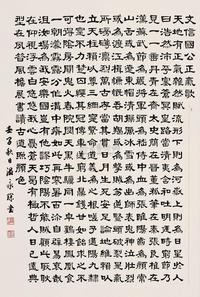 文信國公正氣歌
天地有正氣雜然賦流形下則為河嶽上則為日星於人
曰浩然沛乎塞蒼冥皇路當清夷含和吐明庭時窮節乃
見一一垂丹青在齊太史簡在晉董狐筆在秦張良椎在
漢蘇武節為嚴將軍頭為嵇侍中血為張睢陽齒為顏常
山舌或為遼東帽清操厲冰雪或為出師表鬼神泣壯烈
或為渡江楫慷慨吞胡羯或為擊賊笏逆豎頭破裂是氣
所磅礴凜烈萬古存當其貫日月生死安足論地維賴以
立天柱賴以尊三綱實係命道義為之根嗟予遘陽九隸
也實不力楚囚纓其冠傳車送窮北鼎鑊甘如飴求之不
可得陰房闃鬼火春院閟天黑牛驥同一皂雞棲鳳凰食
一朝蒙霧露分作溝中瘠如此再寒暑百沴自辟易哀哉
沮洳場為我安樂國豈有他繆巧陰陽不能賊顧此耿耿
在仰視浮雲白悠悠我心悲蒼天曷有極哲人日已遠典
型在夙昔風檐展書讀古道照顏色
秋日溫永琛書